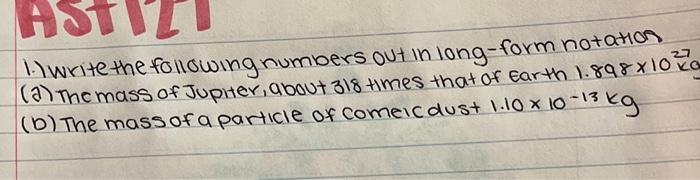 AST 127
1.) write the following numbers out in long-form notation
(a) The mass of Jupiter, about 318 times that of Earth 1.898 x 10²⁷ kg
(b) The mass of a particle of comeic dust 1.10 x 10⁻¹³ kg